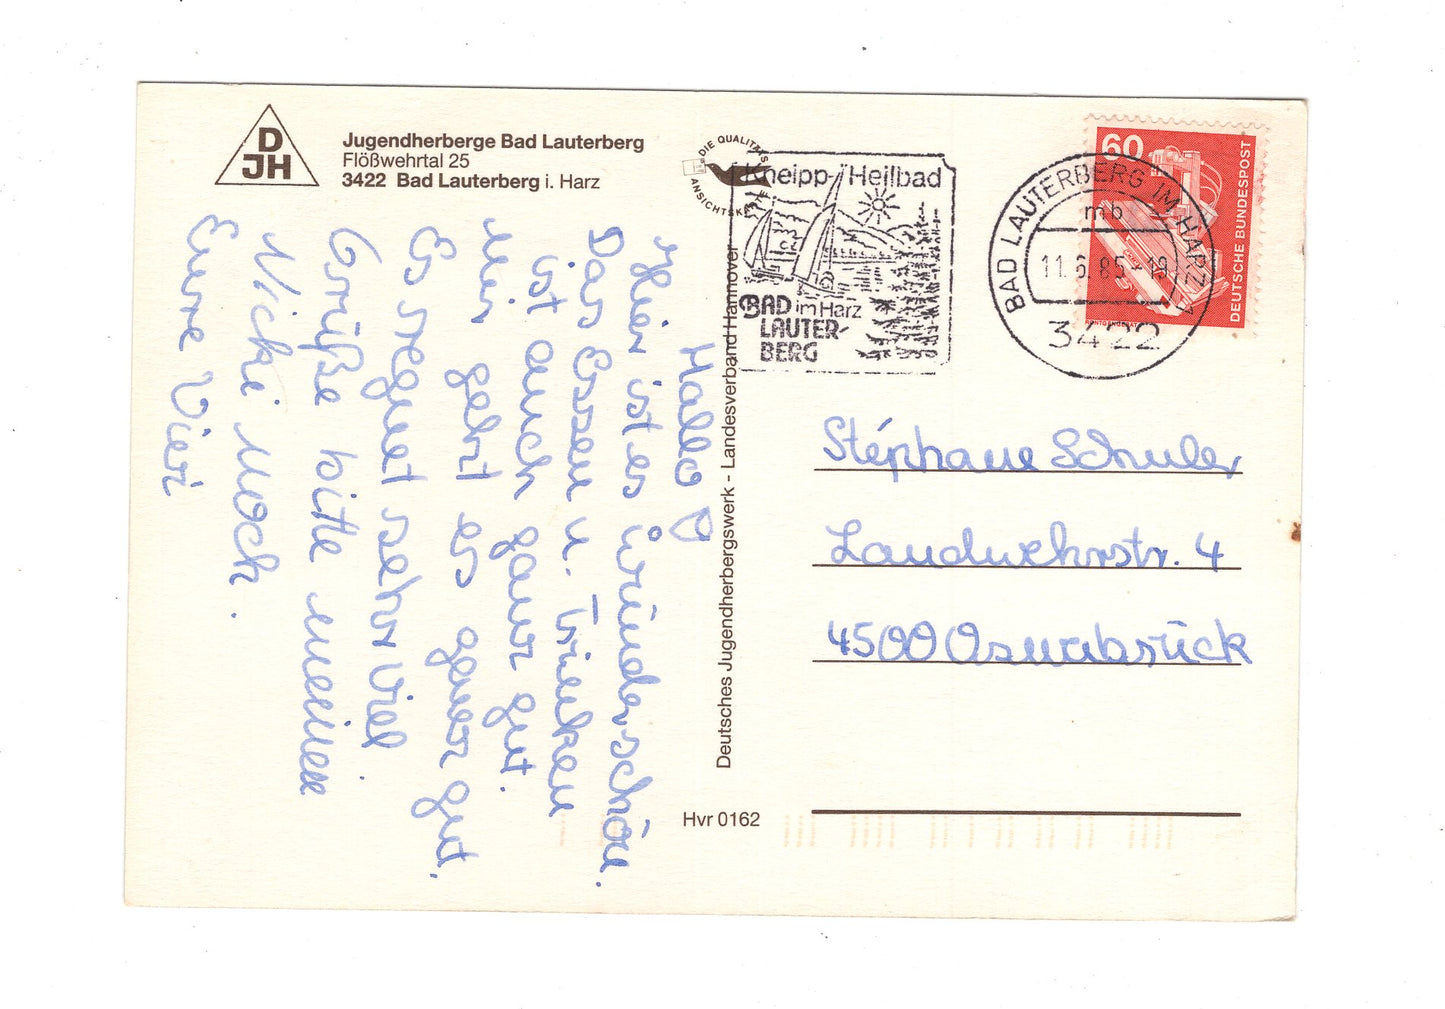 D
JH
Jugendherberge Bad Lauterberg
Flößwehrtal 25
3422 Bad Lauterberg i. Harz
DIE QUALITÄTS
ANSICHTSKARTE
Kneipp-Heilbad
BAD im Harz
LAUTER-
BERG
BAD LAUTERBERG IM HARZ 1
mb
11.6.85-19
3422
60
DEUTSCHE BUNDESPOST
Hallo
Hier ist es wunderschön.
Das Essen u. Trinken
ist auch ganz gut.
Mir geht es ganz gut.
Es regnet sehr viel.
Grüße bitte meinen
Nicki noch.
Eure Vieri
Deutsches Jugendherbergswerk - Landesverband Hannover
Stéphane Schuler
Landwehrstr. 4
4500 Osnabrück
Hvr 0162